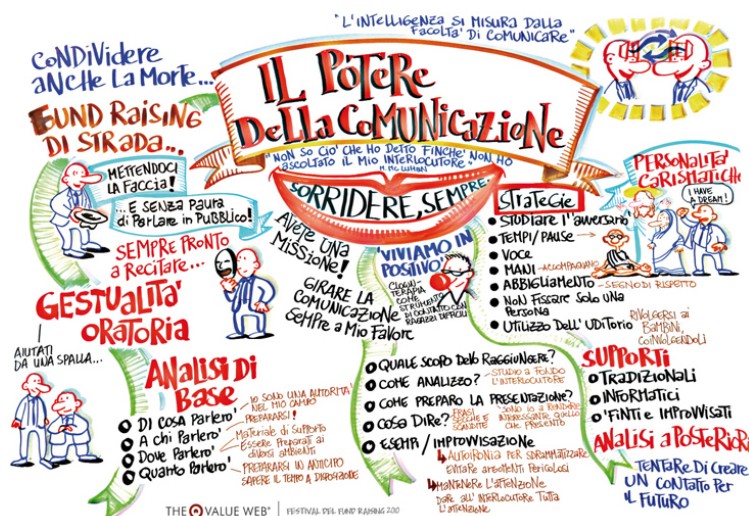 "L'INTELLIGENZA SI MISURA DALLA
FACOLTA' DI COMUNICARE"
CONDIVIDERE
ANCHE LA MORTE...
IL POTERE
DELLA COMUNICAZIONE
"NON SO CIO' CHE HO DETTO FINCHE' NON HO
ASCOLTATO IL MIO INTERLOCUTORE."
SORRIDERE, SEMPRE.
FOUND RAISING
DI STRADA...
METTENDOCI
LA FACCIA!
... E SENZA PAURA
DI PARLARE IN PUBBLICO!
SEMPRE PRONTO
a RECITARE...
GESTUALITA'
ORATORIA
AIUTATI
DA UNA SPALLA...
AVETE UNA
MISSIONE!
GIRARE LA
COMUNICAZIONE
SEMPRE A MIO FAVORE
"VIVIAMO IN
POSITIVO"
CLOWN-
TERAPIA
COME
STRUMENTO
DI CONTATTO CON
RAGAZZI DIFFICILI
STRATEGIE
STUDIARE L'AVVERSARIO
TEMPI/PAUSE
VOCE
MANI - ACCOMPAGNANO
ABBIGLIAMENTO - SEGNO DI RISPETTO
NON FISSARE SOLO UNA
PERSONA
UTILIZZO DELL'UDITORIO
RIVOLGERSI AI
BAMBINI,
COINVOLGENDOLI
PERSONALITA'
CARISMATICHE
I HAVE
A DREAM!
ANALISI DI
BASE
DI COSA PARLERO'
IO SONO UNA AUTORITA'
NEL MIO CAMPO
PREPARARSI!
A CHI PARLERO'
Materiale di SUPPORTO
DOVE PARLERO'
Essere PREPARATI ai
DIVERSI AMBIENTI
QUANTO PARLERO'
PREPARARSI IN ANTICIPO
SAPERE IL TEMPO A DISPOSIZIONE
QUALE SCOPO DEVO RAGGIUNGERE?
COME ANALIZZO?
STUDIO A FONDO
L'INTERLOCUTORE
COME PREPARO LA PRESENTAZIONE?
COSA DIRE?
FRASI
SPECIFICHE E
SCANDITE
SONO IO A RENDERE
INTERESSANTE QUELLO
CHE PRESENTO
ESEMPI / IMPROVVISAZIONE
AUTOIRONIA PER SDRAMMATIZZARE
EVITARE ARGOMENTI PERICOLOSI
MANTENERE L'ATTENZIONE
DARE ALL'INTERLOCUTORE TUTTA
L'ATTENZIONE
SUPPORTI
TRADIZIONALI
INFORMATICI
FINTI E IMPROVVISATI
ANALISI A POSTERIORI
TENTARE DI CREARE
UN CONTATTO PER
IL FUTURO
THE VALUE WEB® | FESTIVAL DEL FUND RAISING 2010